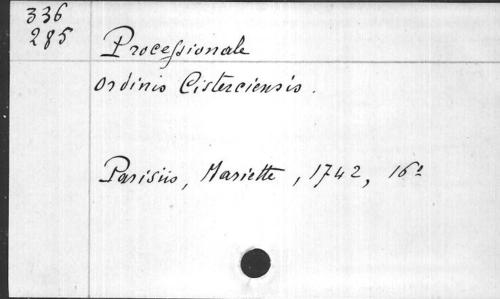 336
285
Processionale
Ordinis Cisterciensis.
Parisiis, Mariette, 1742, 16º